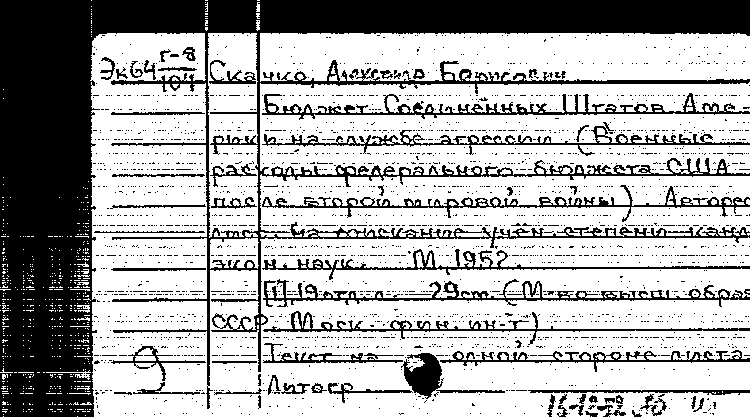 Эк64 г-8/104 Скачко, Александр Борисович
Бюджет Соединенных Штатов Аме-
рики на службе агрессии. (Военные
расходы федерального бюджета США
после второй мировой войны). Авторе
на соискание учён. степени канд
экон. наук. М., 1952.
[1], 19 отд. л. 29 см. (М-во высш. образ
СССР. Моск. фин. ин-т).
Текст на одной стороне листа
9 Литогр.